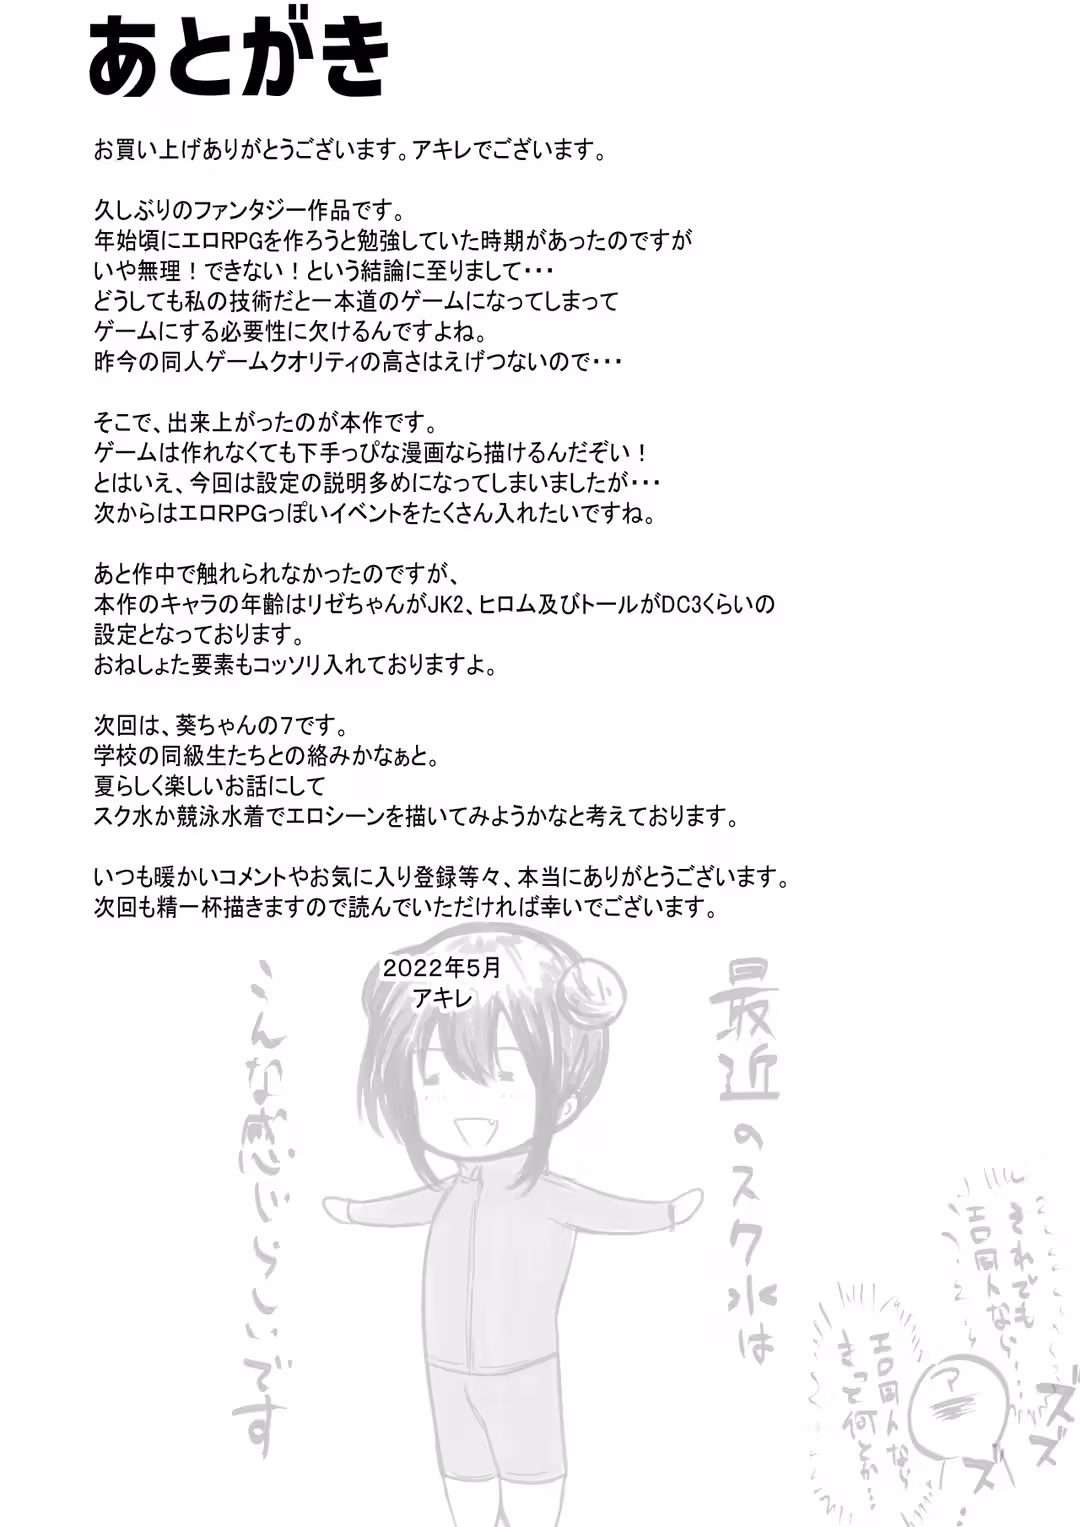 あとがき
お買い上げありがとうございます。アキレでございます。
久しぶりのファンタジー作品です。
年始頃にエロRPGを作ろうと勉強していた時期があったのですが
いや無理！できない！という結論に至りまして・・・
どうしても私の技術だと一本道のゲームになってしまって
ゲームにする必要性に欠けるんですよね。
昨今の同人ゲームクオリティの高さはえげつないので・・・
そこで、出来上がったのが本作です。
ゲームは作れなくても下手っぴな漫画なら描けるんだぞい！
とはいえ、今回は設定の説明多めになってしまいましたが・・・
次からはエロRPGっぽいイベントをたくさん入れたいですね。
あと作中で触れられなかったのですが、
本作のキャラの年齢はリゼちゃんがJK2、ヒロム及びトールがDC3くらいの
設定となっております。
おねしょた要素もコッソリ入れておりますよ。
次回は、葵ちゃんの7です。
学校の同級生たちとの絡みかなぁと。
夏らしく楽しいお話にして
スク水か競泳水着でエロシーンを描いてみようかなと考えております。
いつも暖かいコメントやお気に入り登録等々、本当にありがとうございます。
次回も精一杯描きますので読んでいただければ幸いでございます。
2022年5月
アキレ
最近のスク水は
こんな感じらしいです
それでも
エロ同人なら…
エロ同人なら
きっと何とか…
ア
ズズ
ズ…